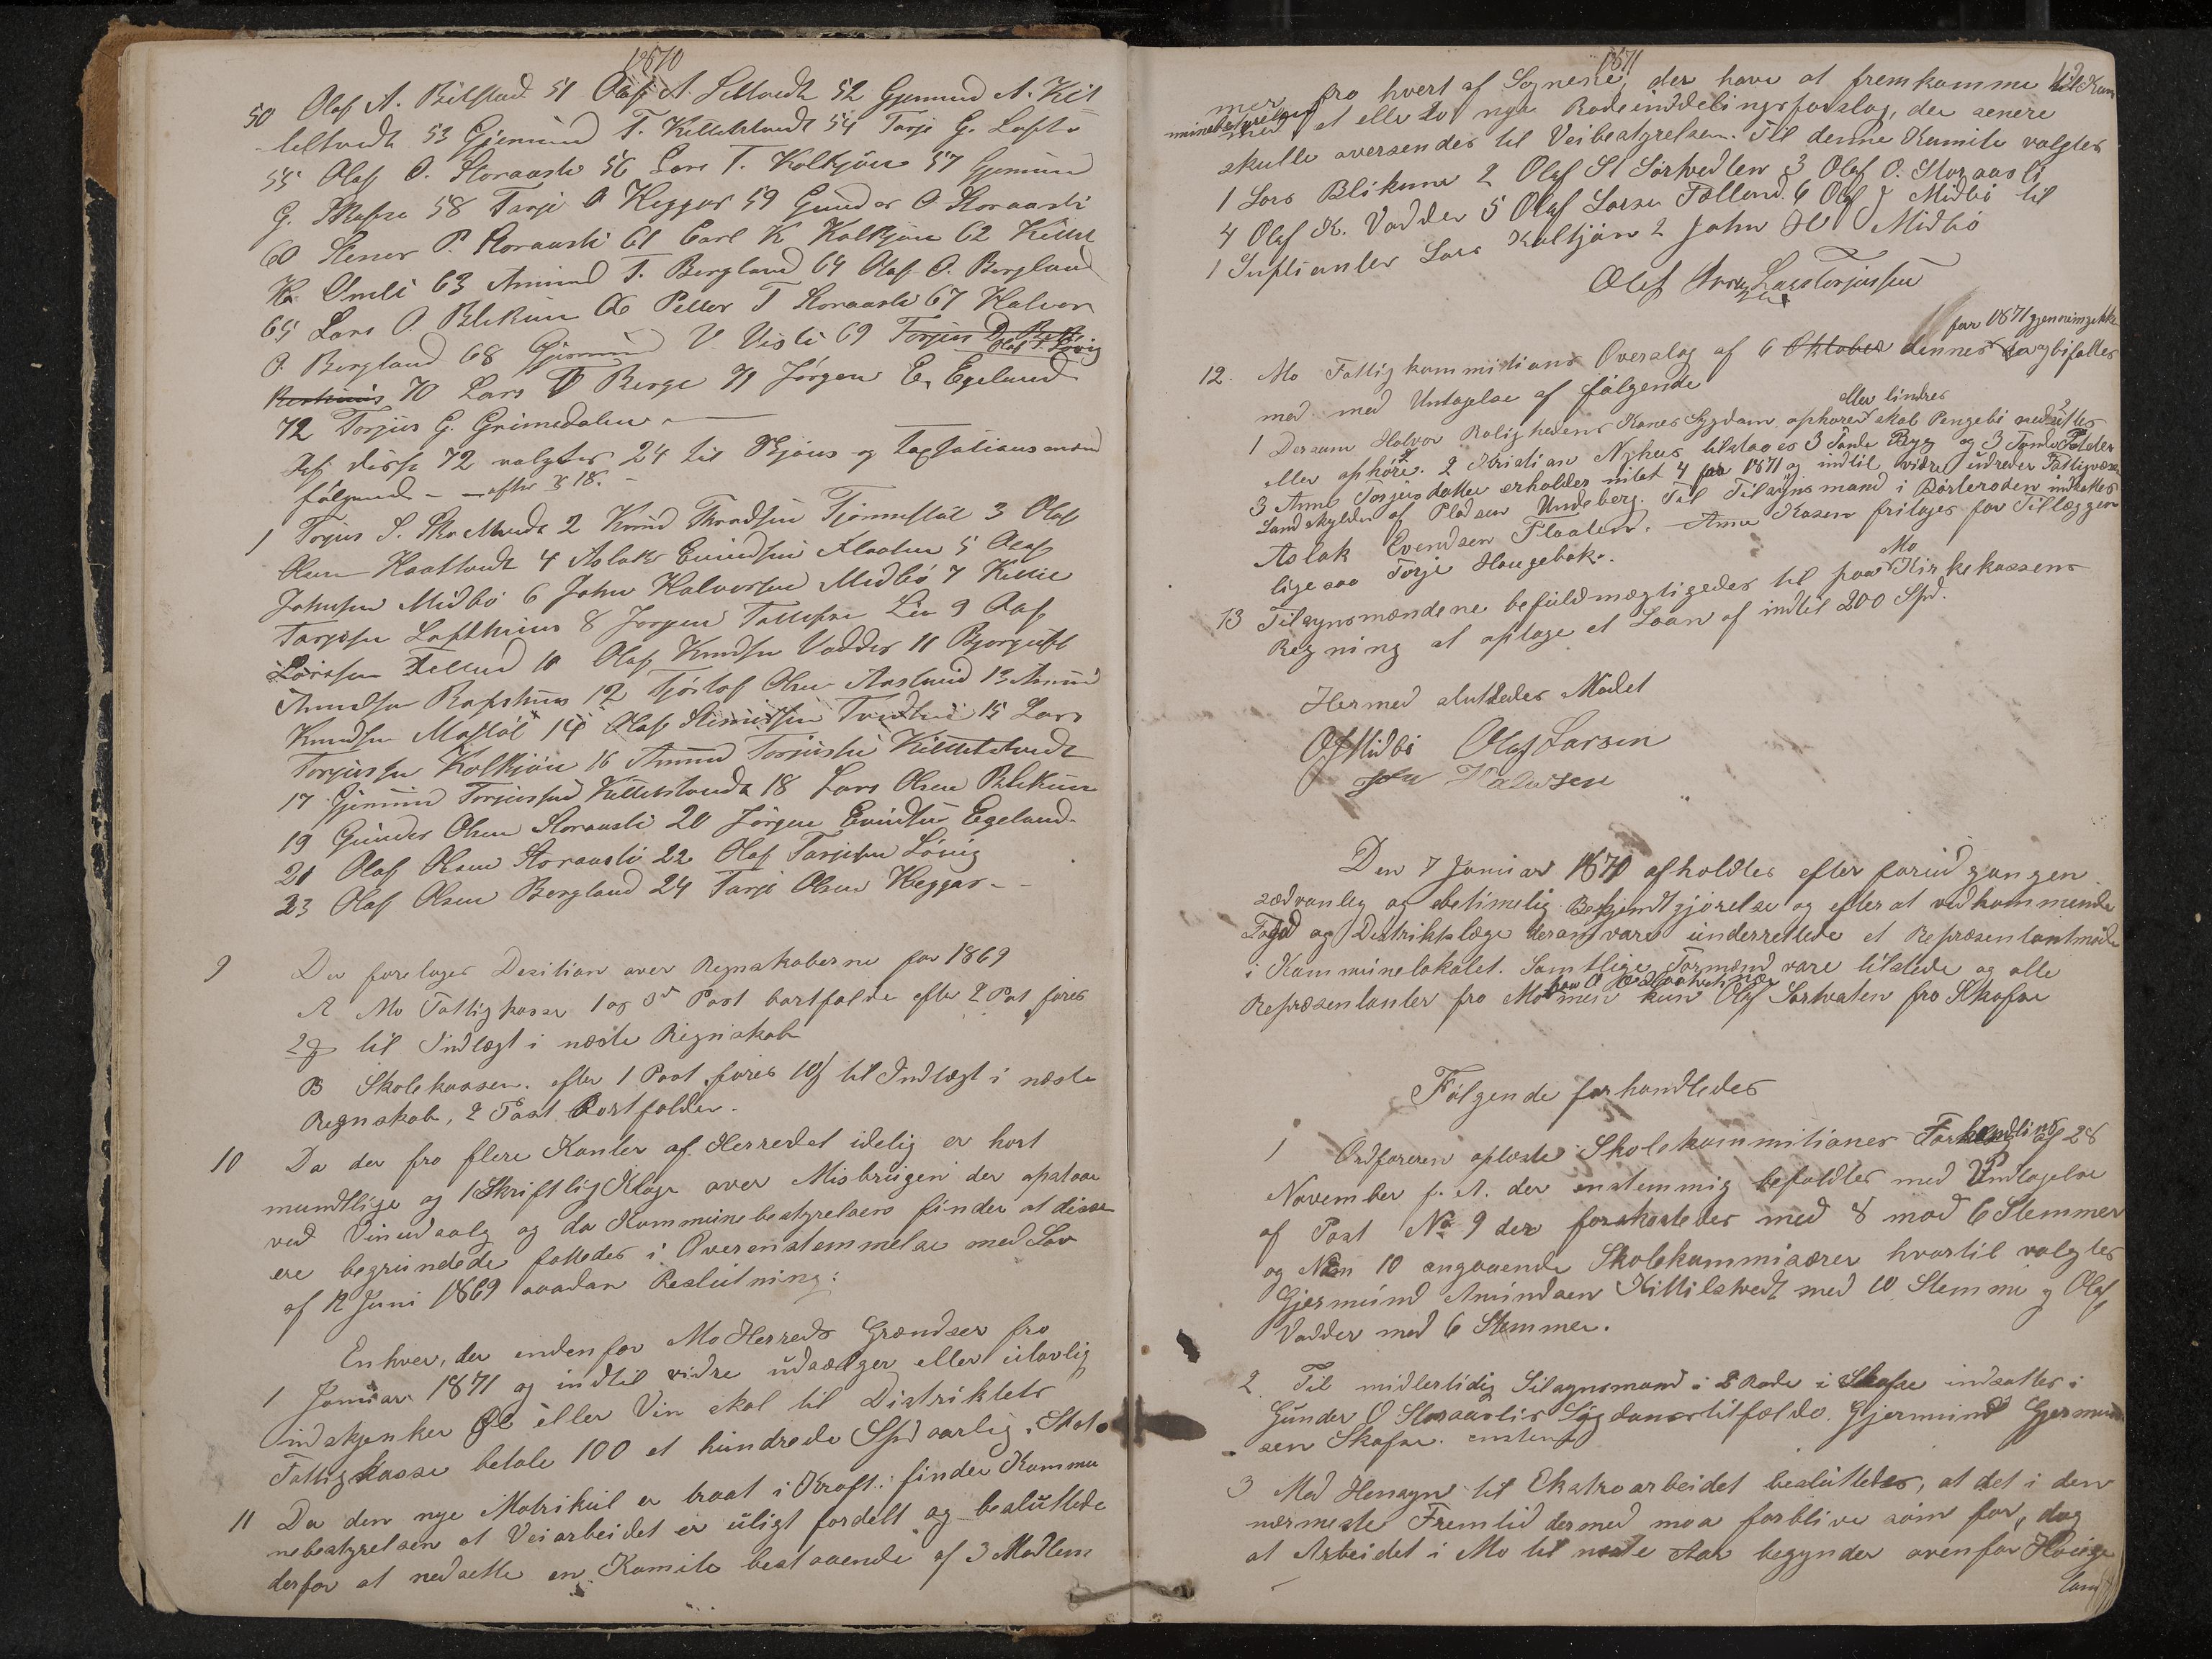 1870
50 Olaf A. Bilstad 51 Olaf A. Sittvedt 52 Gjermund A. Kit
teltvedt 53 Gjermund T. Kittilstvedt 54 Tarje G. Loft
55 Olaf O. Storaasli 56 Lars T. Kolkjøn 57 Gjermund
G. Skafse 58 Tarje O Heggar 59 Gunder O. Storaasli
60 Stener P. Storaasli 61 Carl K Kolkjøn 62 Kittil
K. Omli 63 Amund T. Bergland 64 Olaf O. Bergland
65 Lars O. Blekum 66 Petter T Storaasli 67 Halvor
O. Bergland 68 Gjermund V. Visli 69 Torjus Olaf T. Lövig
70 Lars T Berge 71 Jörgen E. Egeland
72 Torjus G. Grimedalen
Af disse 72 valgtes 24 til Skjöns og Taxationsmænd
følgende - efter § 18.
1 Torjus S. 2 Knud Tjönnstöl 3 Olaf
Olsen Haatvedt 4 Aslak Evindsen Flaaten 5 Olaf
Johnsen Midbö 6 John Halvorsen Midbö 7 Kittil
Tarjesen Lofthuus 8 Jorgen Tallefsen Lie 9 Olaf
Larssen Felland 10 Olaf Knudsen Vadder 11 Bjorguft
Amundsen 12 Tjöstof Olsen 13 Amund
Knudsen 14 Olaf 15 Lars
Torjussen Kolkjön 16 Amund Torjussen Kittilstvedt
17 Gjermund Torjussen Kittilstvedt 18 Lars Olsen Blekum
19 Gunder Olsen Storaasli 20 Jörgen Evindsen Egeland
21 Olaf Olsen Storaasli 22 Olaf Tarjesen Lövig
23 Olaf Olsen Bergland 24 Tarje Olsen Heggar
9 Der foretoges Desition over Regnskaberne for 1869
A Mo Fattigkasse 1 og 3 Post bortfalde efter 2 Post føres
2 til Indtægt i næste Regnskab
B Skolekassen. efter 1 Post føres 10 til Indtægt i næste
Regnskab, 2 Post Bortfalder.
10 Da der fra flere Kanter af Herredet idelig er hørt
mundtlige og 1 Skriftlig Klage over Misbrugen der opstaar
ved Vinudsalg og da Kommunebestyrelsen finder at disse
ere begrundede fattedes i Overenstemmelse med Lov
af 12 Juni 1869 saadan Beslutning:
Enhver, der indenfor Mo Herreds Grændser fra
1 Januar 1871 og indtil vidre udsælger eller ulovlig
indskjenker Øl eller Vin skal til Distriktets
Fattigkasse betale 100 et hundrede Spd aarlig. Skat
11 Da den nye Matrikul er traat i Kraft: finder Kommu
nebestyrelsen at Veiarbeidet er uligt fordelt og besluttede
derfor at nedsette en Komite bestaaende af 3 Medlem
1871
mer fra hvert af Sognene, der have at fremkomme til Kom
munebestyrelsen
med et eller to nye Rodeinddelingsforslag, der senere
skulle oversendes til Veibestyrelsen. Til denne Komite valgtes
1 Lars Blikum 2 Olaf Sl Sorhvedten 3 Olaf O. Storaasli
4 Olaf K. Vadder 5 Olaf Larsen Falland. 6 Olaf J Midbö til
1 Supleanter Lars Kolkjön 2 John H Midbö
Olaf Lars Torjussen
for 1871 gjennemgikkes
12. Mo Fattigkommitions Overslag af 6 Oktober dennes og bifaltes
med med Undtagelse af følgende
eller lindres
1 Dersom Halvor Rolighedens Kones Sygdom ophører skal Pengebi nedsættes
eller ophöre. 2 Kristian Nyhus tilstaaes 3 Tønde Byg og 3 Tønder Poteter
3 Anne Torjusdatter erholder intet 4 for 1871 og indtil vidre udreder Fattigvæsenet
Landskylden af Pladsen Undeberg. Til Tilsynsmand i Börteroden indsattes
Aslak Evendsen Flaaten. Anne Kasen fritages for Tillæggen
ligesaa Torje Haugebak.
13 Tilsynsmændene befuldmægtigedes til paa Mo Kirkekassens
Regning at optage et Laan af indtil 200 Spd.
Hermed sluttedes Mødet
O J Midbö Olaf Larsen
John Halvorsen
Den 7 Januar 1871 afholdtes efter forudgangen
sædvanlig og betimelig Bekjendtgjörelse og efter at vedkommende
Foged og Distriktslæge derom vare underrettede et Repræsentantmöde
i Kommunelokalet. Samtlige Formænd vare tilstede og alle
Repræsentanter fra Mo men kun Olaf Sorhveten fra Skafse
Følgende forhandledes
1 Ordføreren oplæste Skolekommitiones Forhandling af 28
November f. A. der enstemmig befaldtes med Undtagelse
af Post No 9 der forskastedes med 8 mod 6 Stemmer
og No 10 angaaende Skolekommisærer hvortil valgtes
Gjermund Amundsen Kittilstvedt med 10 Stemme og Olaf
Vadder med 6 Stemmer.
2 Til midlertidig Tilsynsmand i 2 Rode i Skafse indsattes i
Gunder O Storaaslis Sygdomstilfælde. Gjermund Gjermund
sen Skafse. enstem
3 Med Hensyn til Ekstraarbeidet besluttedes, at det i den
nærmeste Fremtid dermed maa forblive som før, dog
at Arbeidet i Mo til næste Aar begynder ovenfor Hauge
land